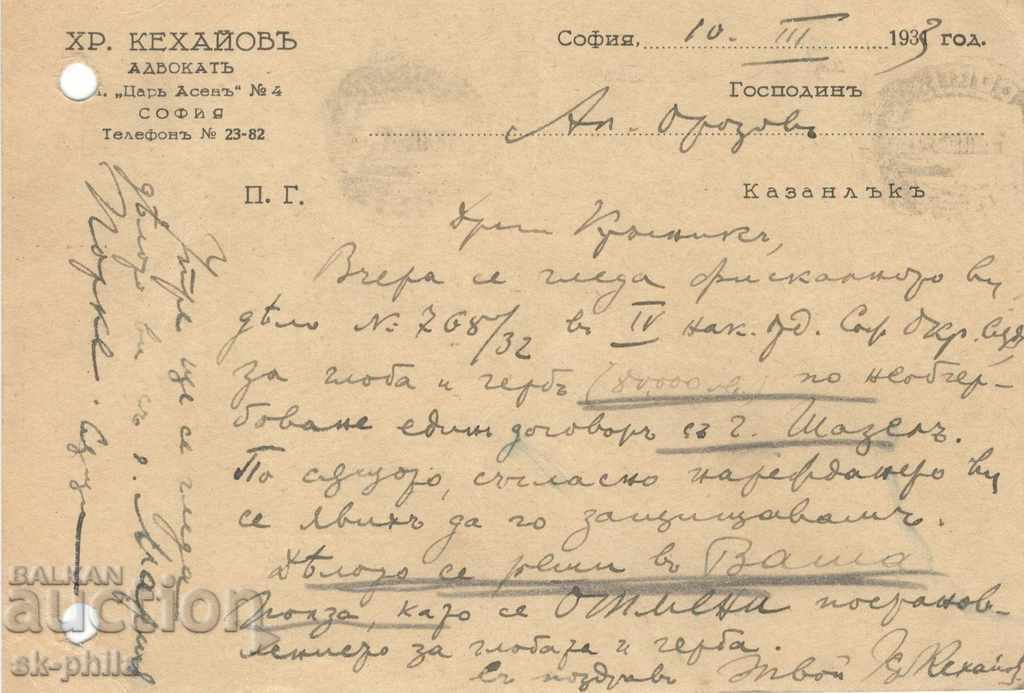 ХР. КЕХАЙОВЪ
АДВОКАТЪ
„Царь Асенъ“ № 4
СОФИЯ
Телефонъ № 23-82
П. Г.
София, 10. III 1933 год.
Господинъ
Ап. Орозовъ
Казанлѫкъ
Драги
Вчера се гледа фискалното ви
дѣло № 768/32 въ IV нак. отд. Соф. Окр. Сѫдъ
за глоба и гербъ (80,000 лв) по необгер-
боване единъ договоръ съ г. Шазелъ.
По сѫщото, съгласно нареждането ви
се явихъ да го защищавамъ.
Дѣлото се реши въ Ваша
полза, като се ОТМЕНИ постанов-
лението за глобата и герба.
Съ поздравъ Твой Хр Кехайовъ
Утре ще се гледа
дѣлото ви съ
BALKAN
auction
sk-phila